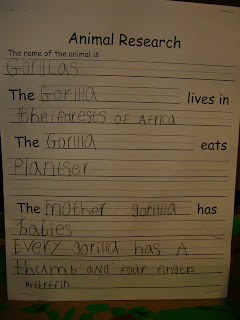 Animal Research
The name of the animal is
Gorillas
The Gorilla lives in
the forests of Africa
The Gorilla eats
Plantser
The mother gorillla has
babies
Every gorilla has A
thumb and four fingers
By Griffin